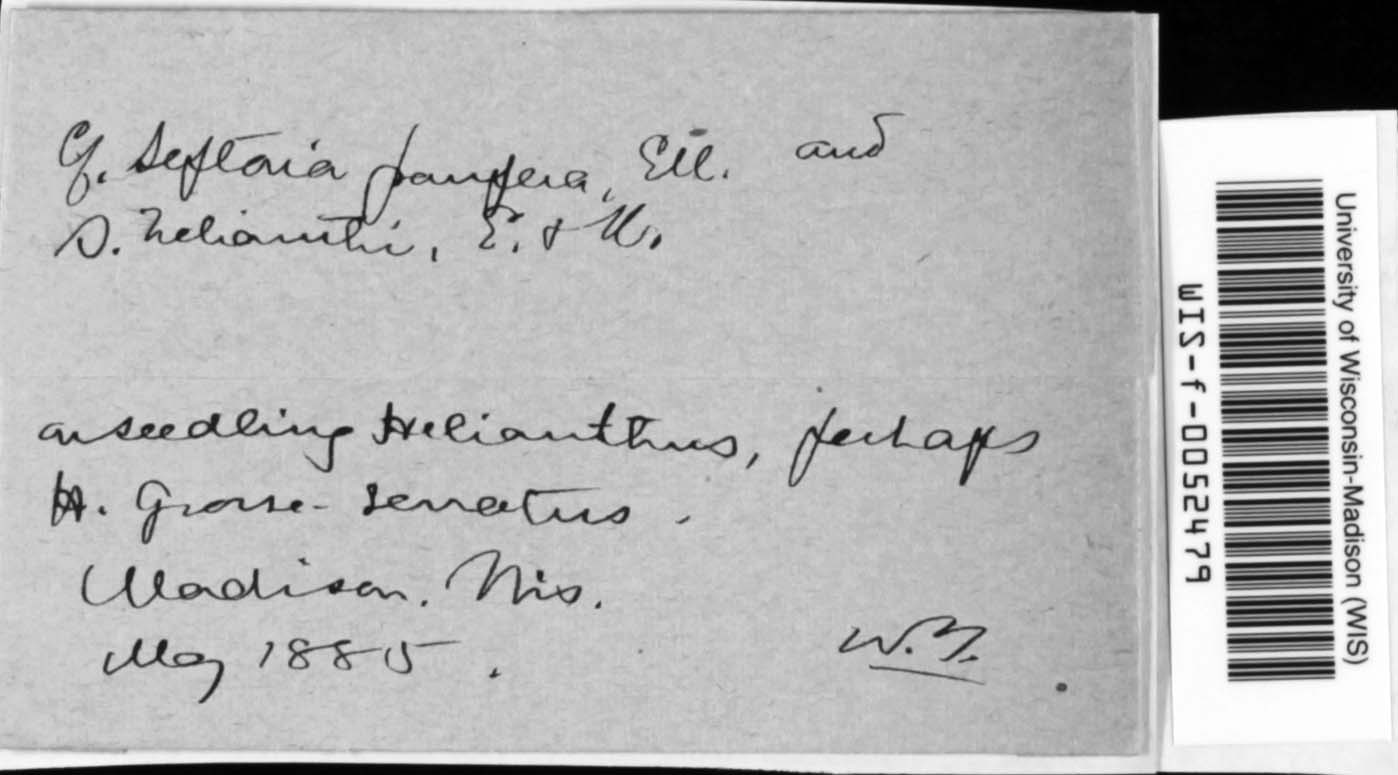 Cf. Septoria paupera, Ell. and
S. helianthi, E. & K.
on seedling Helianthus, perhaps
H. grosse-serratus.
Madison. Wis.
May 1885.
W. T.
University of Wisconsin-Madison (WIS)
WIS-f-0052479